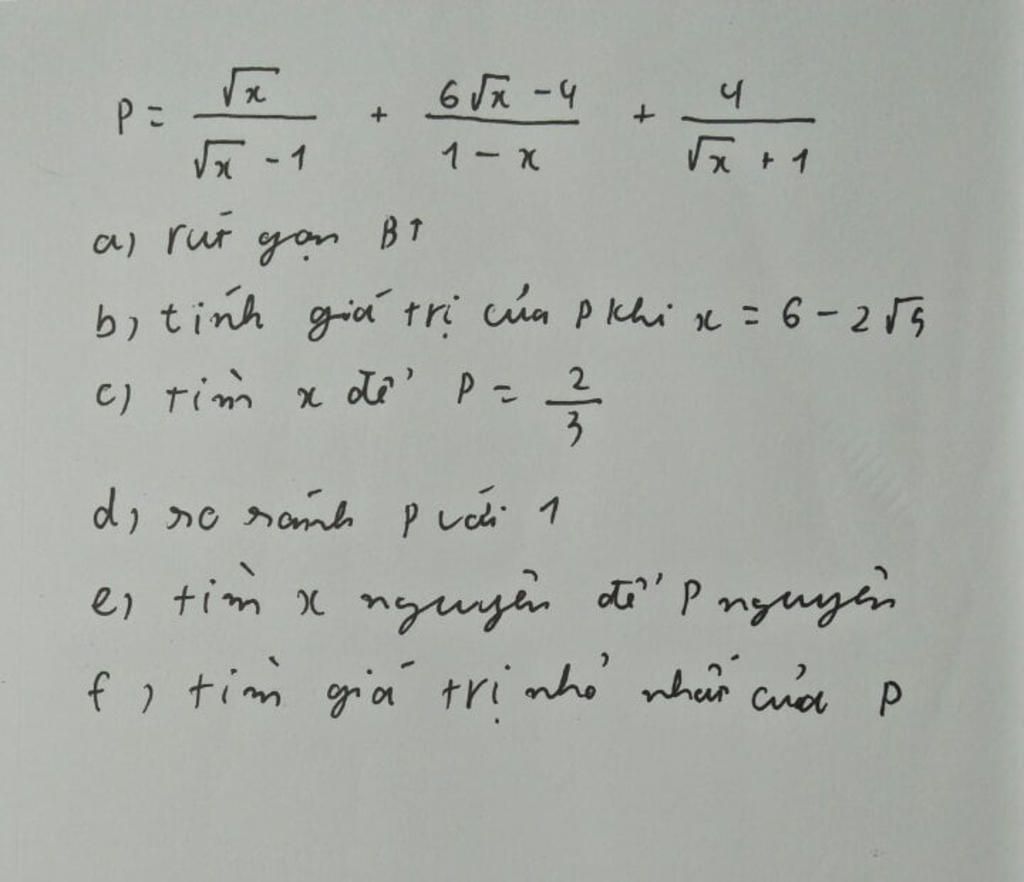 P = \frac{\sqrt{x}}{\sqrt{x} - 1} + \frac{6\sqrt{x} - 4}{1 - x} + \frac{4}{\sqrt{x} + 1}
a) rút gọn BT
b) tính giá trị của P khi x = 6 - 2\sqrt{5}
c) tìm x để P = \frac{2}{3}
d) so sánh P với 1
e) tìm x nguyên để P nguyên
f) tìm giá trị nhỏ nhất của P